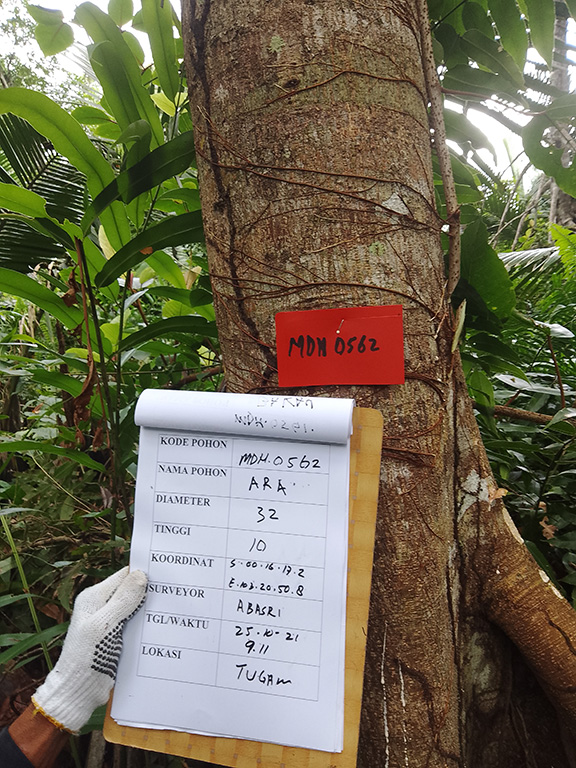 MDH 0562
KODE POHON MDH.0562
NAMA POHON ARA
DIAMETER 32
TINGGI 10
KOORDINAT S.00.16.17.2
E.103.20.50.8
SURVEYOR ABASRI
TGL/WAKTU 25-10-21
9.11
LOKASI TUGAM